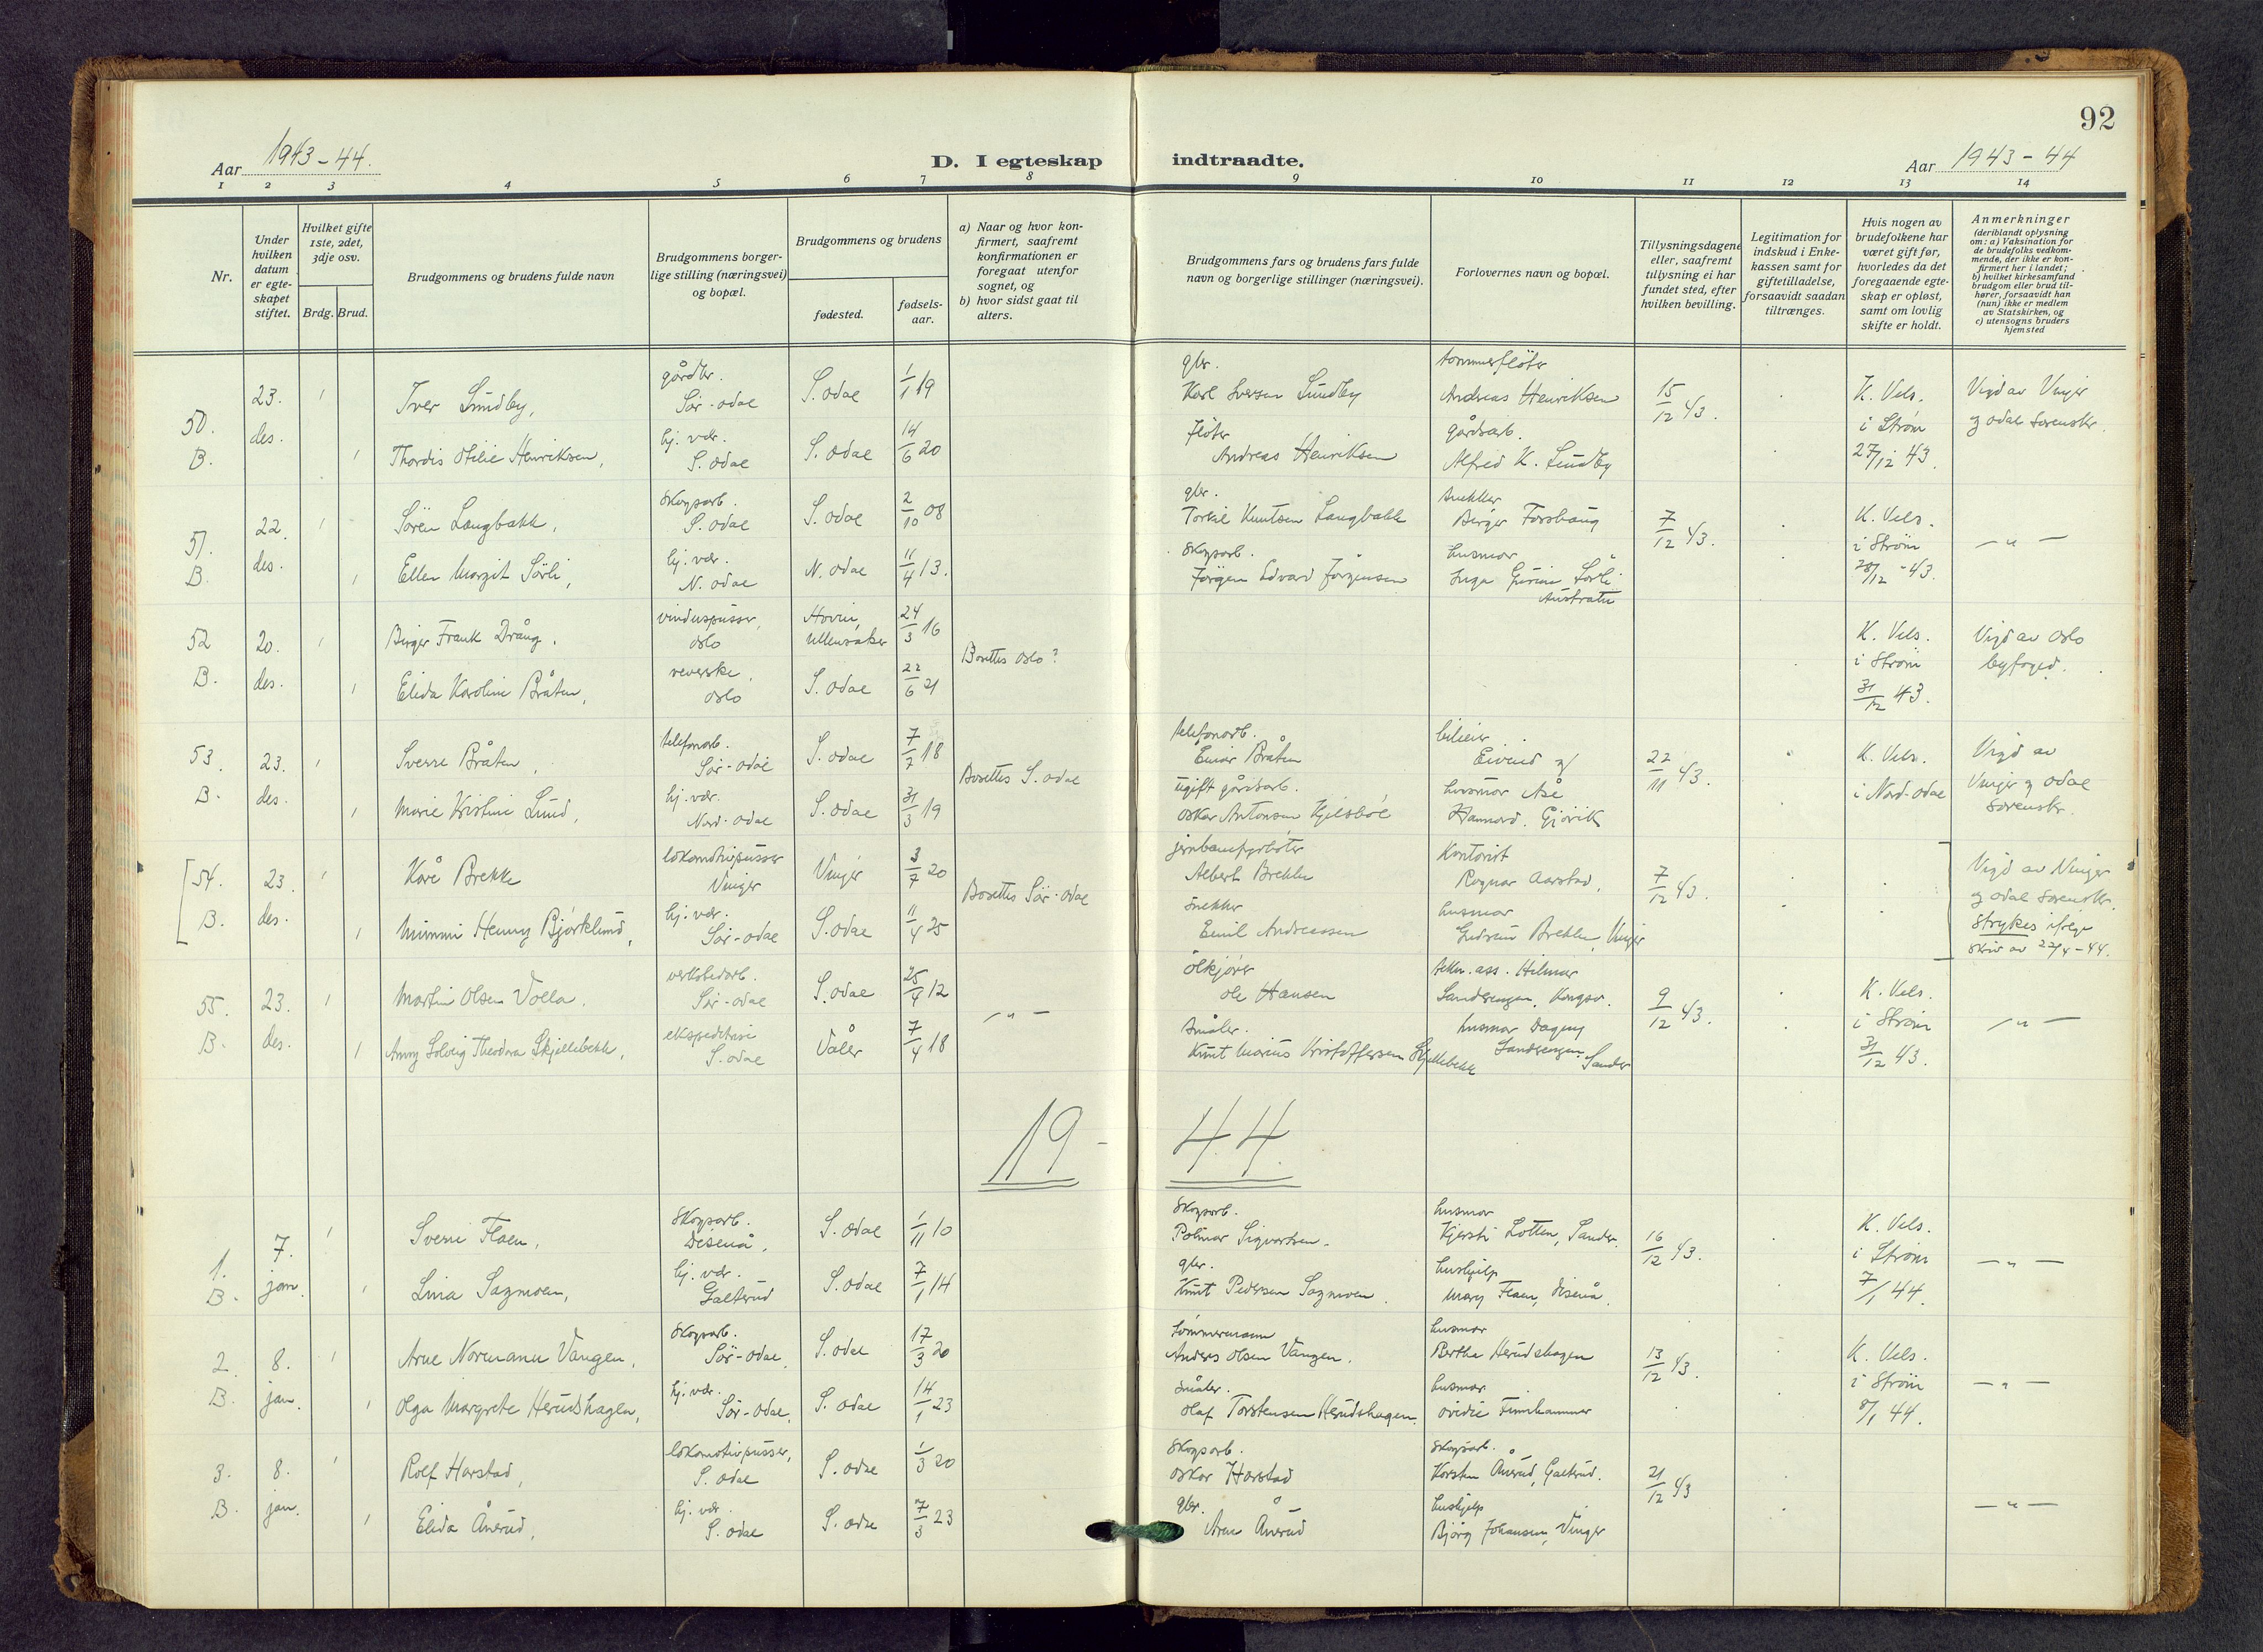 92
Aar 1943-44.
D. I egteskap indtraadte.
Aar 1943-44
1 2 3 4 5 6 7 8 9 10 11 12 13 14
Nr.
Under hvilken datum er egteskapet stiftet.
Hvilket gifte 1ste, 2det, 3dje osv.
Brdg. Brud.
Brudgommens og brudens fulde navn
Brudgommens borgerlige stilling (næringsvei) og bopæl.
Brudgommens og brudens
fødested.
fødselsaar.
a) Naar og hvor konfirmert, saafremt konfirmationen er foregaat utenfor sognet, og
b) hvor sidst gaat til alters.
Brudgommens fars og brudens fars fulde navn og borgerlige stillinger (næringsvei).
Forlovernes navn og bopæl.
Tillysningsdagene eller, saafremt tillysning ei har fundet sted, efter hvilken bevilling.
Legitimation for indskud i Enkekassen samt for giftetilladelse, forsaavidt saadan tiltrænges.
Hvis nogen av brudefolkene har været gift før, hvorledes da det foregaaende egteskap er opløst, samt om lovlig skifte er holdt.
Anmerkninger (deriblandt oplysning om: a) Vaksination for de brudefolks vedkommende, der ikke er konfirmert her i landet; b) hvilket kirkesamfund brudgom eller brud tilhører, forsaavidt han (hun) ikke er medlem av Statskirken, og c) utensogns bruders hjemsted
50. 23. des. 1 Iver Sundby, gårdbr. Sør-odal S. odal 1/1 19 gbr. Karl Iversen Sundby tømmerfløter Andreas Henriksen 15/12 43. K. Vels. i Strøm 27/12 43. Vigd av Vinger og odal sorenskr.
B. 1 Thordis Otilie Henriksen, hj. vær. S. odal S. odal 14/6 20 fløter Andreas Henriksen gårdsarb. Alfred K. Sundby
51. 22. des. 1 Søren Langbakk, skogsarb. S. odal S. odal 2/10 08 gbr. Torkil Knutsen Langbakk snekker Birger Forsbaug 7/12 43. K. Vels. i Strøm 28/12-43. —"—
B. 1 Ellen Margit Sørli, hj. vær. N. odal N. odal 11/4 13. skogsarb. Jørgen Edvard Jørgensen husmor Inga Gurine Sørli Austvatn
52 20. des. 1 Birger Frank Drång. vinduspusser, oslo Hovin, Ullensaker 24/3 16 Bosettes oslo? K. Vels. i Strøm 31/12 43. Vigd av oslo byfoged.
B. 1 Elida Karoline Bråten, veverske, oslo S. odal 22/6 21
53. 23. des. 1 Sverre Bråten, telefonarb. Sør-odal S. odal 7/7 18 Bosettes S. odal telefonarb. Einar Bråten bileier Eivind og 22/11 43. K. Vels. i Nord-odal Vigd av Vinger og odal sorenskr.
B. 1 Marie Kristine Lund, hj. vær. Nord-odal S. odal 31/3 19 ugift gårdsarb. oskar Antonsen Kjelsbøl husmor Åse Gjøvik
54. 23. des. 1 Kåre Brekke lokomotivpusser Vinger Vinger 3/7 20 Bosettes Sør-odal jernbanefyrbøter Albert Brekke Kontorist Ragnar Aarstad, 7/12 43. Vigd av Vinger og odal sorenskr. Strykes ifølge skriv av 22/4-44.
B. 1 Mimmi Henny Bjørklund, hj. vær. Sør-odal S. odal 11/4 25 snekker Emil Andreassen husmor Gudrun Brekke, Vinger
55. 23. des. 1 Martin Olsen Volla, verkstedarb. Sør-odal S. odal 25/4 12 —"— ølkjører Ole Hansen tekn. ass. Hilmar Sandsengen, Kongsv. 9/12 43. K. Vels. i Strøm 31/12 43. —"—
B. 1 Anny Solveig Theodora Skjellebekk, ekspeditrise S. odal Våler 7/4 18 småbr. Knut Marius Kristoffersen Skjellebekk husmor Dagny Sandsengen Sander
19-44.
1. 7. jan. 1 Sverre Floen, skogsarb. Disenå, S. odal 1/11 10 skogsarb. Polmar Sigvartsen. husmor Kjersti Lotten, Sander. 16/12 43. K. Vels. i Strøm 7/1 44. —"—
B. 1 Lina Sagmoen, hj. vær. Galterud S. odal 7/1 14 gbr. Knut Pedersen Sagmoen. hushjelp Mary Floen, Disenå.
2. 8. jan. 1 Arne Normann Vangen, skogsarb. Sør-odal, S. odal 17/3 20 tømmermann Anders Olsen Vangen. husmor Bertha Herudshagen 13/12 43. K. Vels. i Strøm 8/1 44. —"—
B. 1 Olga Margrete Herudshagen, hj. vær. Sør-odal, S. odal 14/1 23 småbr. Olaf Torstensen Herudshagen. husmor ovidie Finnhammer
3. 8. jan. 1 Rolf Harstad, lokomotivpusser, S. odal S. odal 1/3 20 skogsarb. oskar Harstad skogsarb. Karsten Ånerud, Galterud. 21/12 43 —"—
B. 1 Elida Ånerud, hj. vær. S. odal S. odal 7/3 23 gbr. Arne Ånerud hushjelp Bjørg Johansen, Vinger